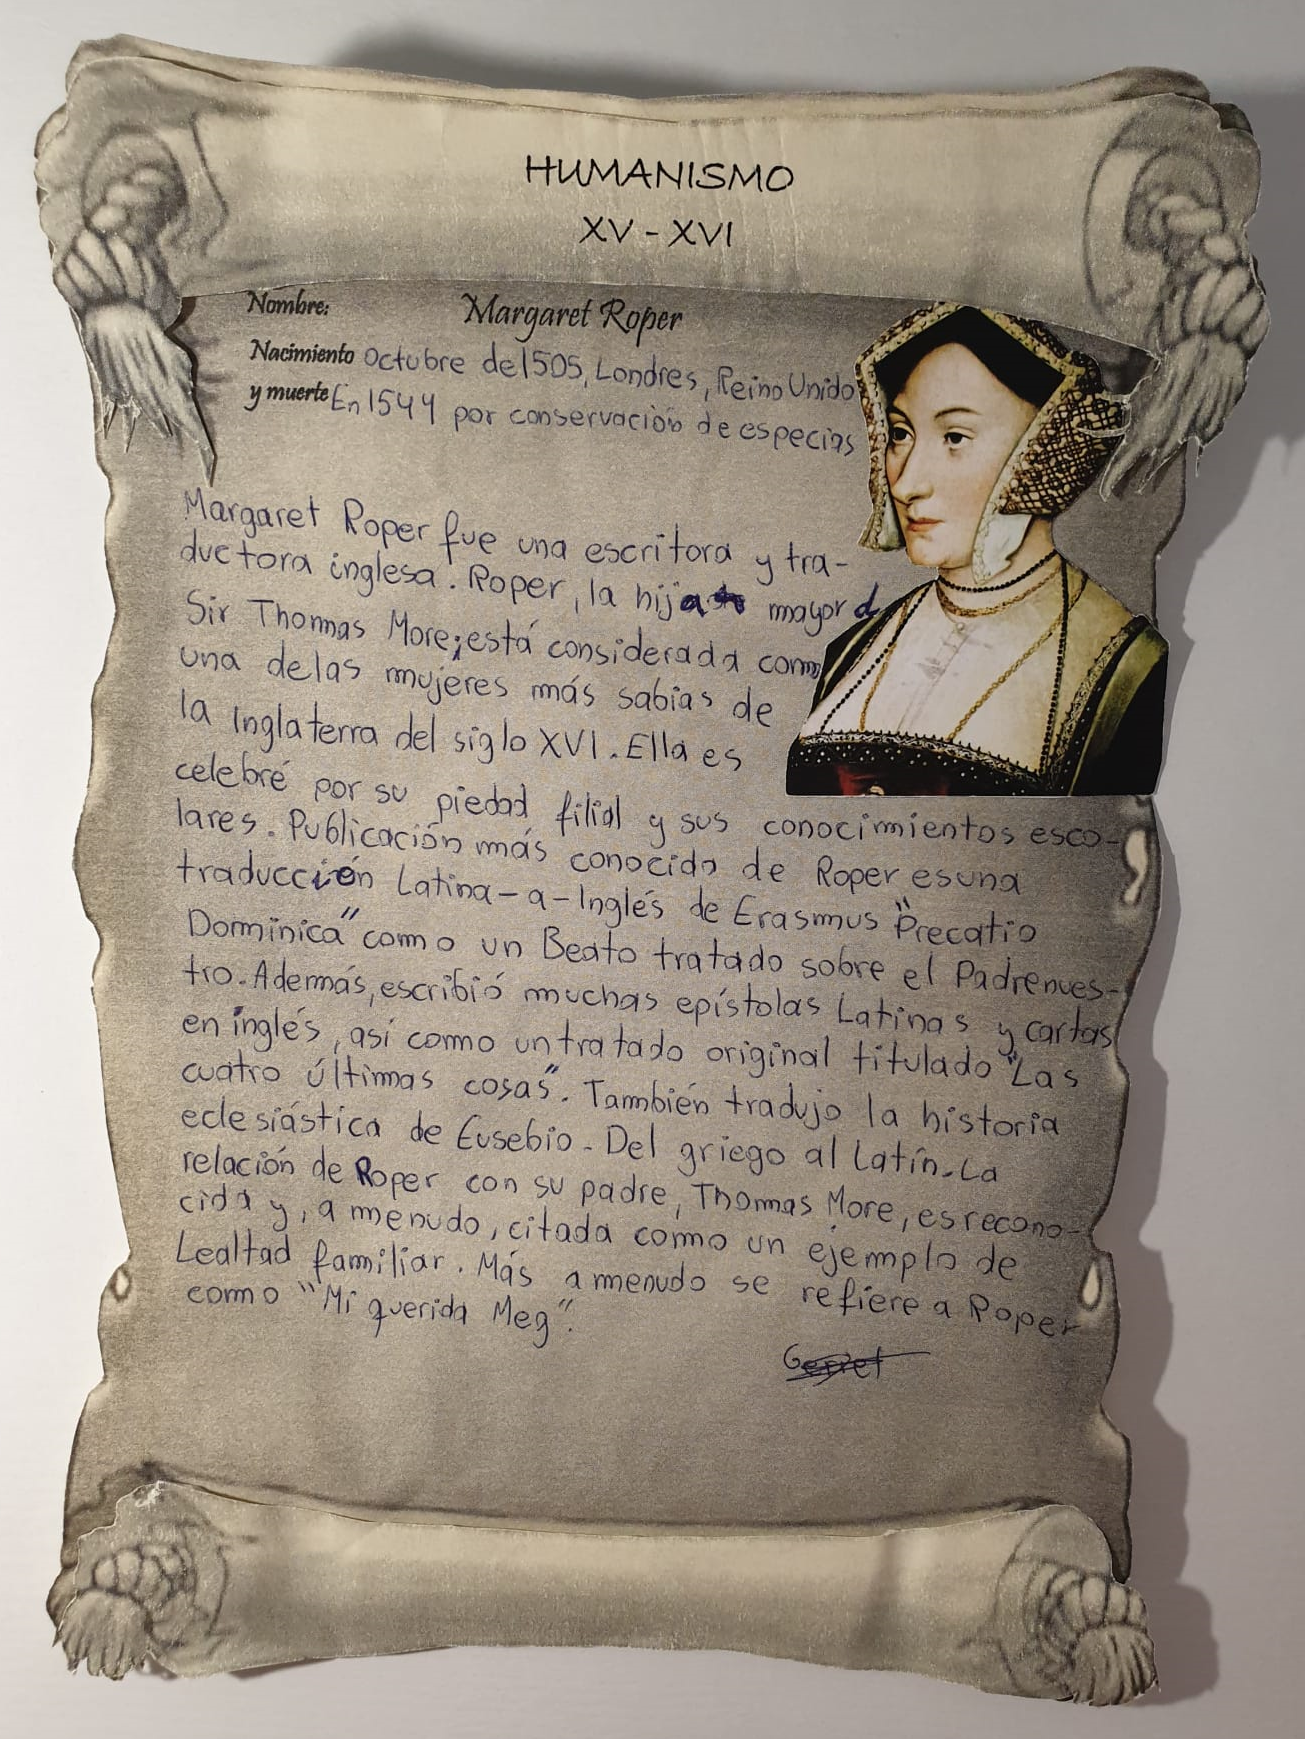 HUMANISMO
XV - XVI
Nombre: Margaret Roper
Nacimiento Octubre de 1505, Londres, Reino Unido
y muerte En 1544 por conservación de especias
Margaret Roper fue una escritora y tra-
ductora inglesa. Roper, la hija mayor d
Sir Thomas More, está considerada como
una delas mujeres más sabias de
la Inglaterra del siglo XVI. Ella es
celebré por su piedad filial y sus conocimientos esco-
lares. Publicación más conocida de Roper es una
traducción Latina-a-Inglés de Erasmus "Precatio
Dominica" como un Beato tratado sobre el Padrenues-
tro. Además, escribió muchas epístolas Latinas y cartas
en inglés, así como un tratado original titulado "Las
cuatro últimas cosas". También tradujo la historia
eclesiástica de Eusebio. Del griego al Latín. La
relación de Roper con su padre, Thomas More, es recono-
cida y, a menudo, citada como un ejemplo de
Lealtad familiar. Más a menudo se refiere a Roper
como "Mi querida Meg".